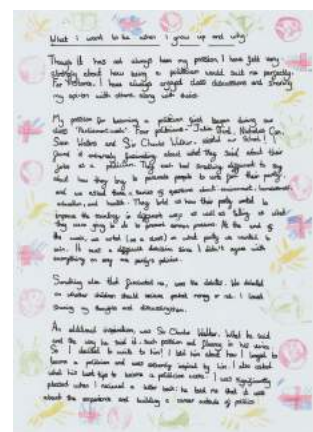 What i want to be when i grow up and why
Though it has not always been my passion I have felt very
strongly about how being a politician would suit me perfectly.
For instance, I have always enjoyed class discussions and sharing
my opinion with others along with theirs.
My passion for becoming a politician first began during our
class 'Parliament week'. Four politicians - Julia Bird, Nicholas Cox,
Sean Waters and Sir Charles Walker, visited our School. I
found it extremely fascinating about what they said about their
jobs as a politician. They each had something different to say
about how they long to persuade people to vote for their party
and we asked them a series of questions about environment, homelessness,
education, and health. They told us how their party wanted to
improve the country in different ways as well as telling us what
they were going to do to prevent serious problems. At the end of
the week, we voted (as a class) on what party we wanted to
win. It was a difficult decision since I didn't agree with
everything on any one party's points.
Something else that fascinated me, was the debates. We debated
on whether children should receive pocket money or not. I loved
sharing my thoughts and
An additional inspiration, was Sir Charles Walker. What he said
and the way he said it: such passion and in his voice.
So I decided to write to him! I told him about how I longed to
become a politician and was extremely inspired by him. I also asked
what his best tips to become a politician were. I was significantly
pleased when I received a letter back: he told me that it was
about the experience and building a career outside of politics